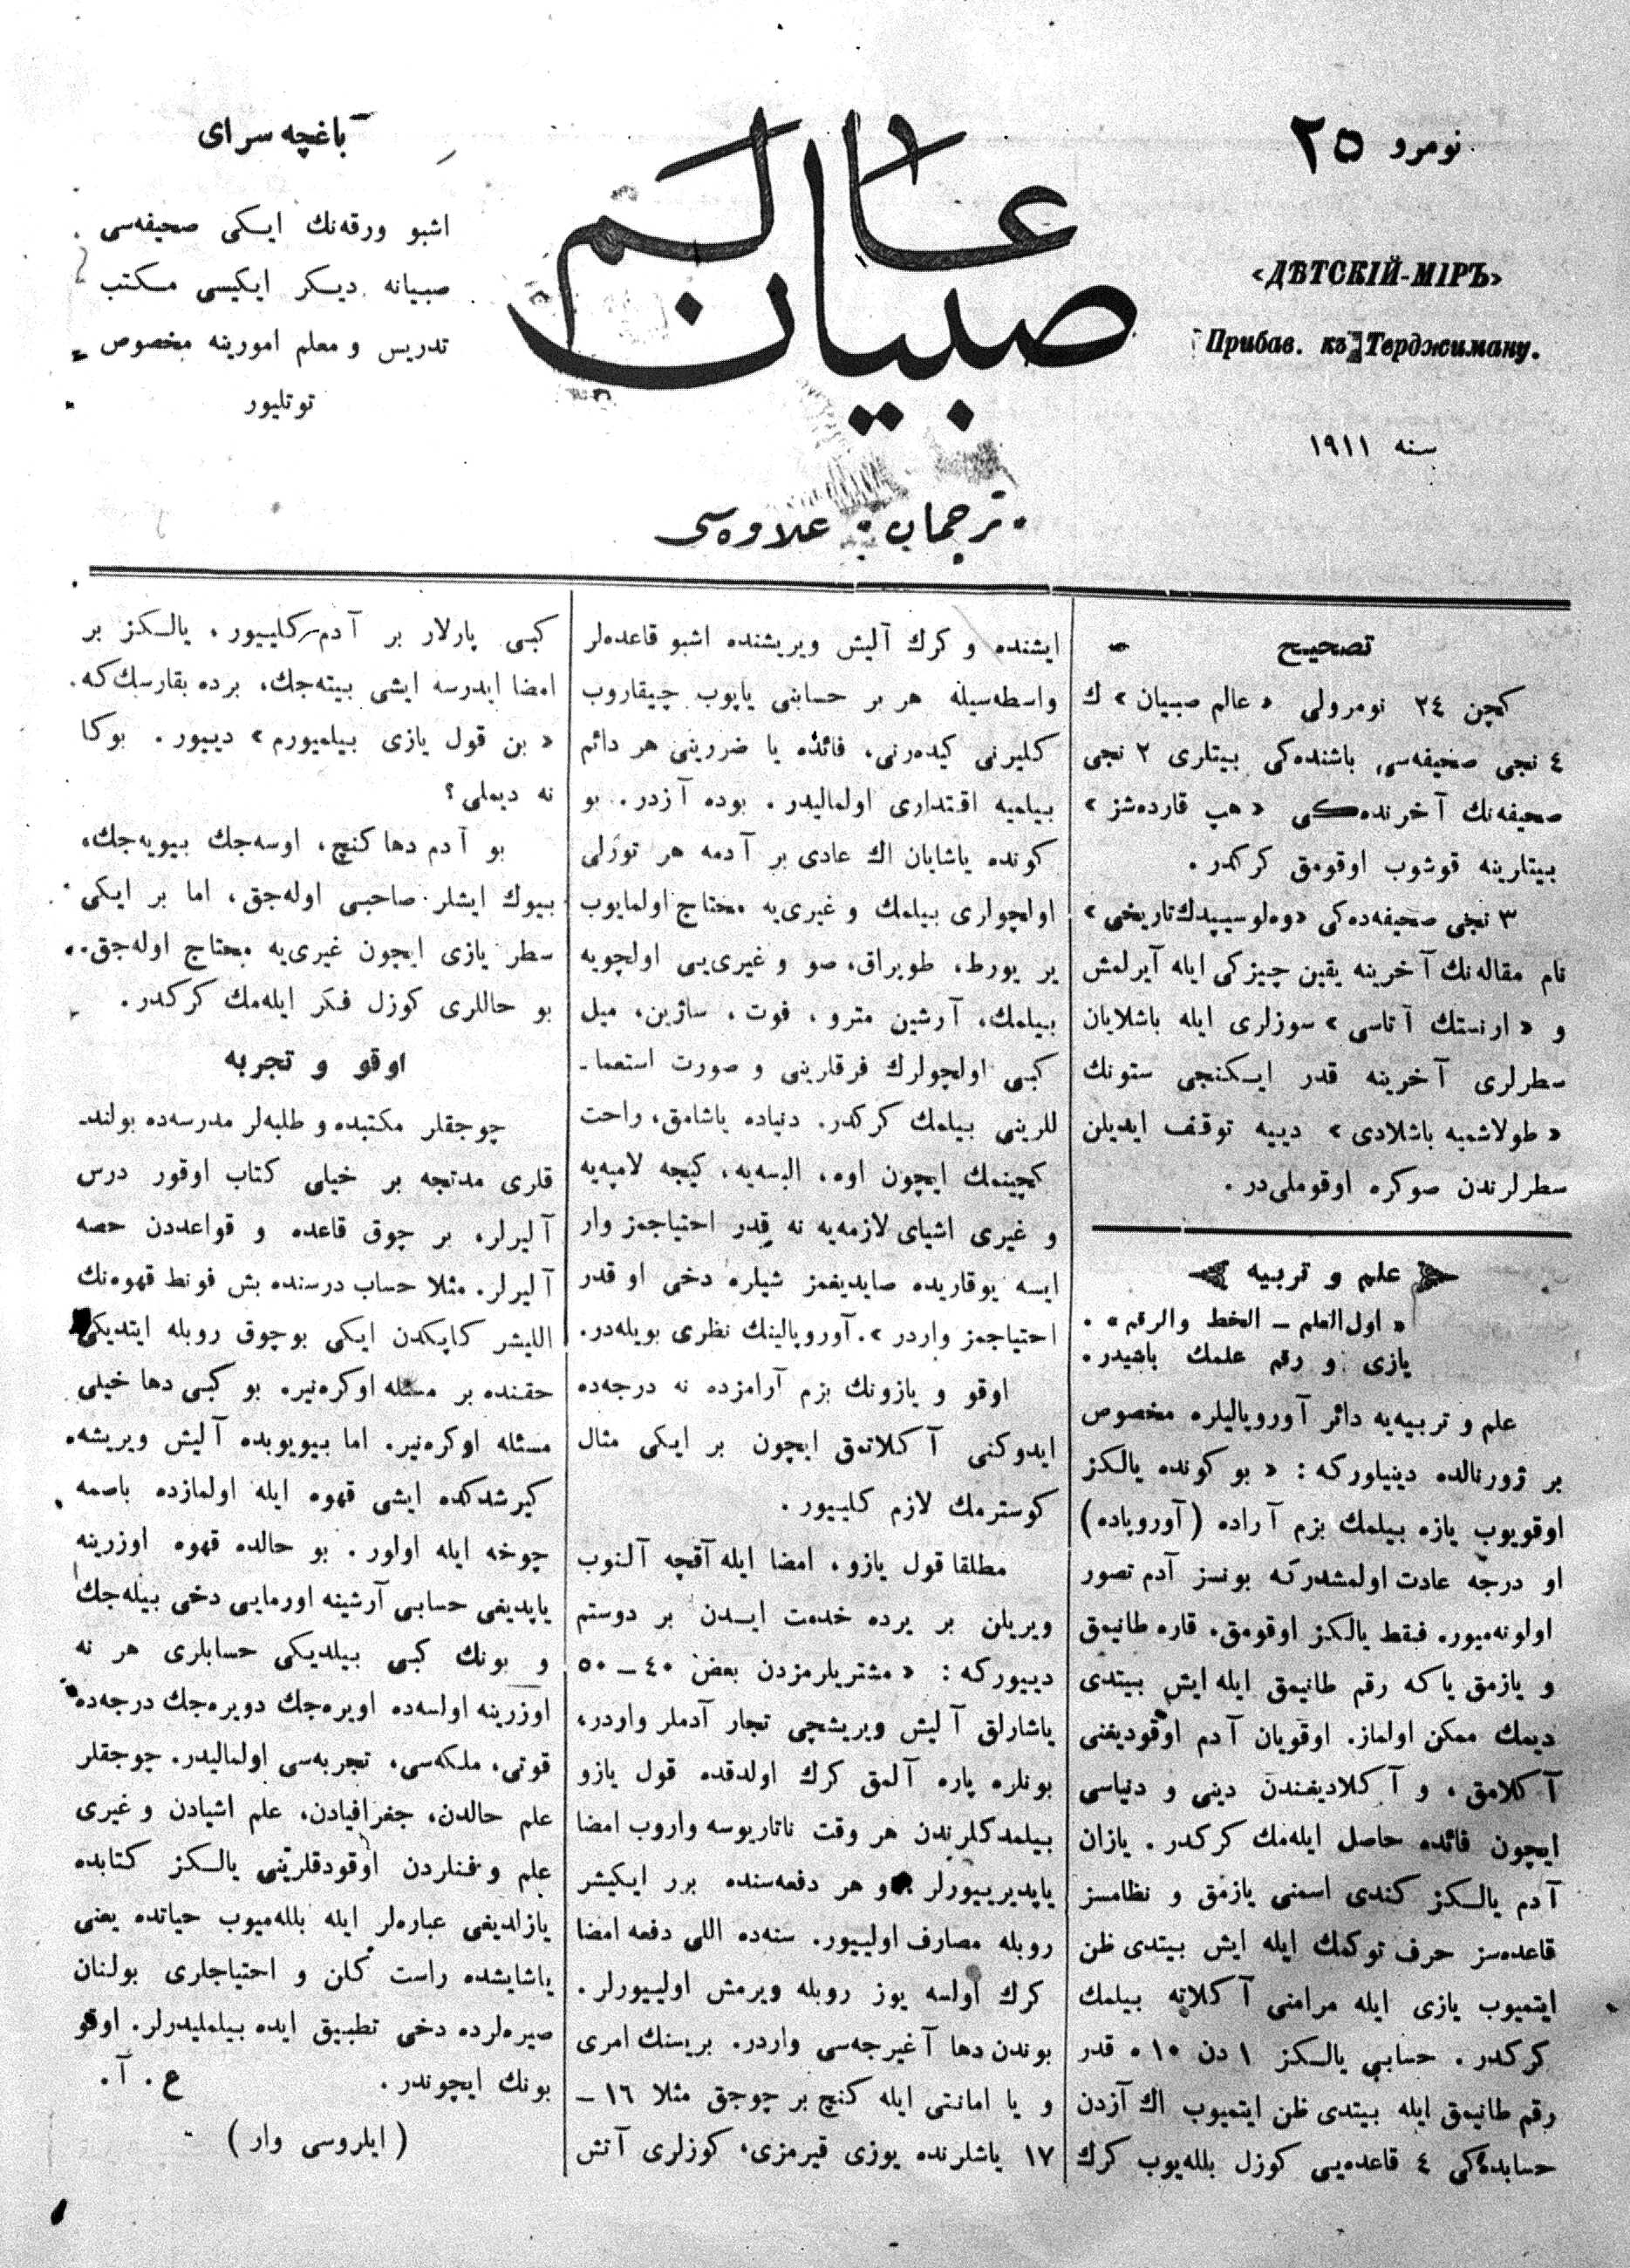 نومرو ٢٥
«ДѢТСКІЙ-МІРЪ»
Прибав. къ Терджиману.
سنه ١٩١١
عالم
صبيان
ترجمان علاوه‌سى
باغچه سراى
اشبو ورقه‌نك ايكى صحيفه‌سى
صبيانه ديكر ايكيسى مكتب
تدريس و معلم امورينه مخصوص
توتليور
تصحيح
كچن ٢٤ نومرولى «عالم صبيان» ك
٤ نجى صحيفه‌سى باشنده‌كى بيتلرى ٢ نجى
صحيفه‌نك آخرنده‌كى «هپ قارده‌شز»
بيتلرينه قوشوب اوقومق كركدر.
٣ نجى صحيفه‌ده‌كى «وه‌لوسيپدك تاريخى»
نام مقاله‌نك آخرينه يقين چيزكى ايله آيرلمش
و «ارنستك آتاسى» سوزلرى ايله باشلايان
سطرلرى آخرينه قدر ايكنجى ستونك
«طولاشميه باشلادى» دييه توقف ايديلن
سطرلرندن صوكره اوقوملى‌در.
علم و تربيه
«اول العلم ــ الخط والرقم».
يازى و رقم علمك باشيدر.
علم و تربيه‌يه دائر آوروپاليلره مخصوص
بر ژورنالده دينيلوركه: «بو كونده يالكز
اوقويوب يازه بيلمك بزم آراده (آوروپاده)
او درجه عادت اولمشدركه بونسز آدم تصور
اولونه‌ميور. فقط يالكز اوقومق، قاره طانيمق
و يازمق ياكه رقم طانيمق ايله ايش بيتدى
ديمك ممكن اولماز. اوقويان آدم اوقوديغنى
آكلامق، و آكلاديغندن دينى و دنياسى
ايچون فائده حاصل ايله‌مك كركدر. يازان
آدم يالكز كندى اسمنى يازمق و نظامسز
قاعده‌سز حرف توكمك ايله ايش بيتدى ظن
ايتميوب يازى ايله مرامنى آكلاته بيلمك
كركدر. حسابى يالكز ١ دن ١٠ ه قدر
رقم طانيمق ايله بيتدى ظن ايتميوب اك آزدن
حسابده‌كى ٤ قاعده‌يى كوزل بلله‌يوب كرك
ايشنده و كرك آليش ويريشنده اشبو قاعده‌لر
واسطه‌سيله هر بر حسابنى ياپوب چيقاروب
كليرنى كيده‌رنى، فائده يا ضررينى هر دائم
بيلميه اقتدارى اولماليدر. بوده آزدر. بو
كونده ياشايان اك عادى بر آدمه هر تورلى
اولچولرى بيلمك و غيرى‌يه محتاج اولمايوب
ير يورط، طوپراق، صو و غيرى‌يى اولچويه
بيلمك، آرشين مترو، فوت، ساژين، ميل
كبى اولچولرك فرقلرينى و صورت استعما-
للرينى بيلمك كركدر. دنياده ياشامق، راحت
كچينمك ايچون اوه، البسه‌يه، كيجه لامپه‌يه
و غيرى اشياى لازمه‌يه نه قدر احتياجمز وار
ايسه يوقاريده صايديغمز شيلره دخى او قدر
احتياجمز واردر». آوروپالينك نظرى بويله‌در.
اوقو و يازونك بزم آرامزده نه درجه‌ده
ايدوكنى آكلاتمق ايچون بر ايكى مثال
كوسترمك لازم كلييور.
مطلقا قول يازو، امضا ايله آقچه آلنوب
ويريلن بر يرده خدمت ايدن بر دوستم
دييوركه: «مشتريلرمزدن بعض ٤٠ــ٥٠
ياشارلق آليش ويريشجى تجار آدملر واردر،
بونلره پاره آلمق كرك اولدقده قول يازو
بيلمدكلرندن هر وقت ناتاريوسه واروب امضا
ياپديرييورلر و هر دفعه‌سنده برر ايكيشر
روبله مصارف اولييور. سنه‌ده اللى دفعه امضا
كرك اولسه يوز روبله ويرمش اولييورلر.
بوندن دها آغيرجه‌سى واردر. بريسنك امرى
و يا امانتى ايله كنج بر چوجق مثلا ١٦ــ
١٧ ياشلرنده يوزى قيرمزى، كوزلرى آتش
كبى پارلار بر آدم كلييور. يالكز بر
امضا ايدرسه ايشى بيته‌جك، برده بقارسك كه.
«بن قول يازى بيلميورم» دييور. بوكا
نه ديملى؟
بو آدم دها كنج، اوسه‌جك بيويه‌جك،
بيوك ايشلر صاحبى اوله‌جق، اما بر ايكى
سطر يازى ايچون غيرى‌يه محتاج اوله‌جق..
بو حاللرى كوزل فكر ايله‌مك كركدر.
اوقو و تجربه
چوجقلر مكتبده و طلبه‌لر مدرسه‌ده بولند-
قلرى مدتجه بر خيلى كتاب اوقور درس
آليرلر، بر چوق قاعده و قواعددن حصه
آليرلر. مثلا حساب درسنده بش فونط قهوه‌نك
الليشر كاپكدن ايكى بوچوق روبله ايتديكى
حقنده بر مسئله اوكره‌نير. بو كبى دها خيلى
مسئله اوكره‌نير. اما بيويوبده آليش ويريشه.
كيرشدكده ايشى قهوه ايله اولمازده باصمه
چوخه ايله اولور. بو حالده قهوه اوزرينه
ياپديغى حسابى آرشينه اورمايى دخى بيله‌جك
و بونك كبى بيلديكى حسابلرى هر نه
اوزرينه اولسه‌ده اويره‌جك دويره‌جك درجه‌ده
قوتى، ملكه‌سى، تجربه‌سى اولماليدر. چوجقلر
علم حالدن، جغرافيادن، علم اشيادن و غيرى
علم و فنلردن اوقودقلرينى يالكز كتابده
يازلديغى عباره‌لر ايله بلله‌ميوب حياتده يعنى
ياشايشده راست كلن و احتياجلرى بولنان
صيره‌لرده دخى تطبيق ايده بيلمليدرلر. اوقو
بونك ايچوندر. ع. آ.
(ايلروسى وار)